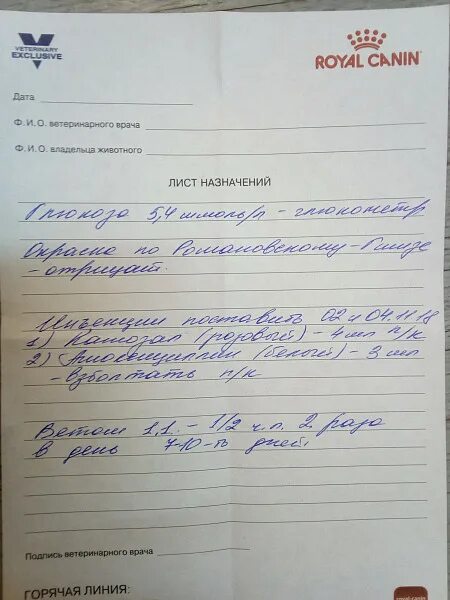 VETERINARY
EXCLUSIVE
ROYAL CANIN
Дата
Ф. И. О. ветеринарного врача
Ф. И. О. владельца животного
ЛИСТ НАЗНАЧЕНИЙ
Глюкоза 5,4 ммоль/л - глюкометр
Окраска по Романовскому-Гимзе
- отрицат.
Инъекции поставить 02 и 04.11.18
1) Катозал (розовый) - 4 мл п/к
2) Амоксициллин (белый) - 3 мл
- взболтать п/к
Ветом 1,1. - 1/2 ч.л. 2 раза
в день 7-10-ть дней.
Подпись ветеринарного врача
ГОРЯЧАЯ ЛИНИЯ:
royal-canin